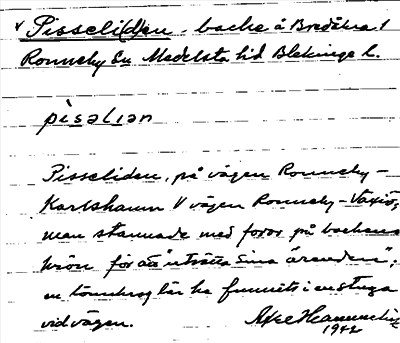 v Pisseli(d)en - backe å Bredåkra 1
Ronneby Sn Medelsta hd Blekinge l.
pìsəlìən
Pisseliden, på vägen Ronneby -
Karlshamn V vägen Ronneby - Växiö,
man stannade med foror på backens
krön för att "uträtta sina ärenden";
en lönnkrog lär ha funnits i en stuga
vid vägen.
Axel
1942